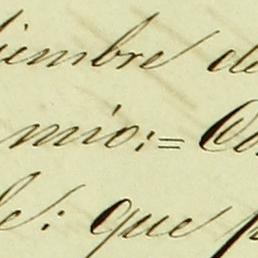 iembre de
mio:= 
le: que